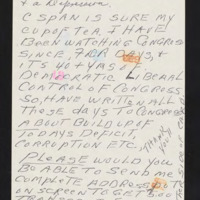 & a Depression.
C SPAN IS SURE MY
CUP OF TEA, I HAVE
BEEN WATCHING CONGRESS
SINCE DAYS, &
ITS 40 + YRS OF
DEMOCRATIC LIBERAL
CONTROL OF CONGRESS,
SO, HAVE WRITTEN ALL
THOSE DAYS TO CONGRESS
ABOUT BUILD UP OF
TODAYS DEFICIT,
CORRUPTION ETC.
PLEASE WOULD YOU
BE ABLE TO SEND ME
COMPLETE ADDRESS
ON SCREEN TO GET
THANK YOU